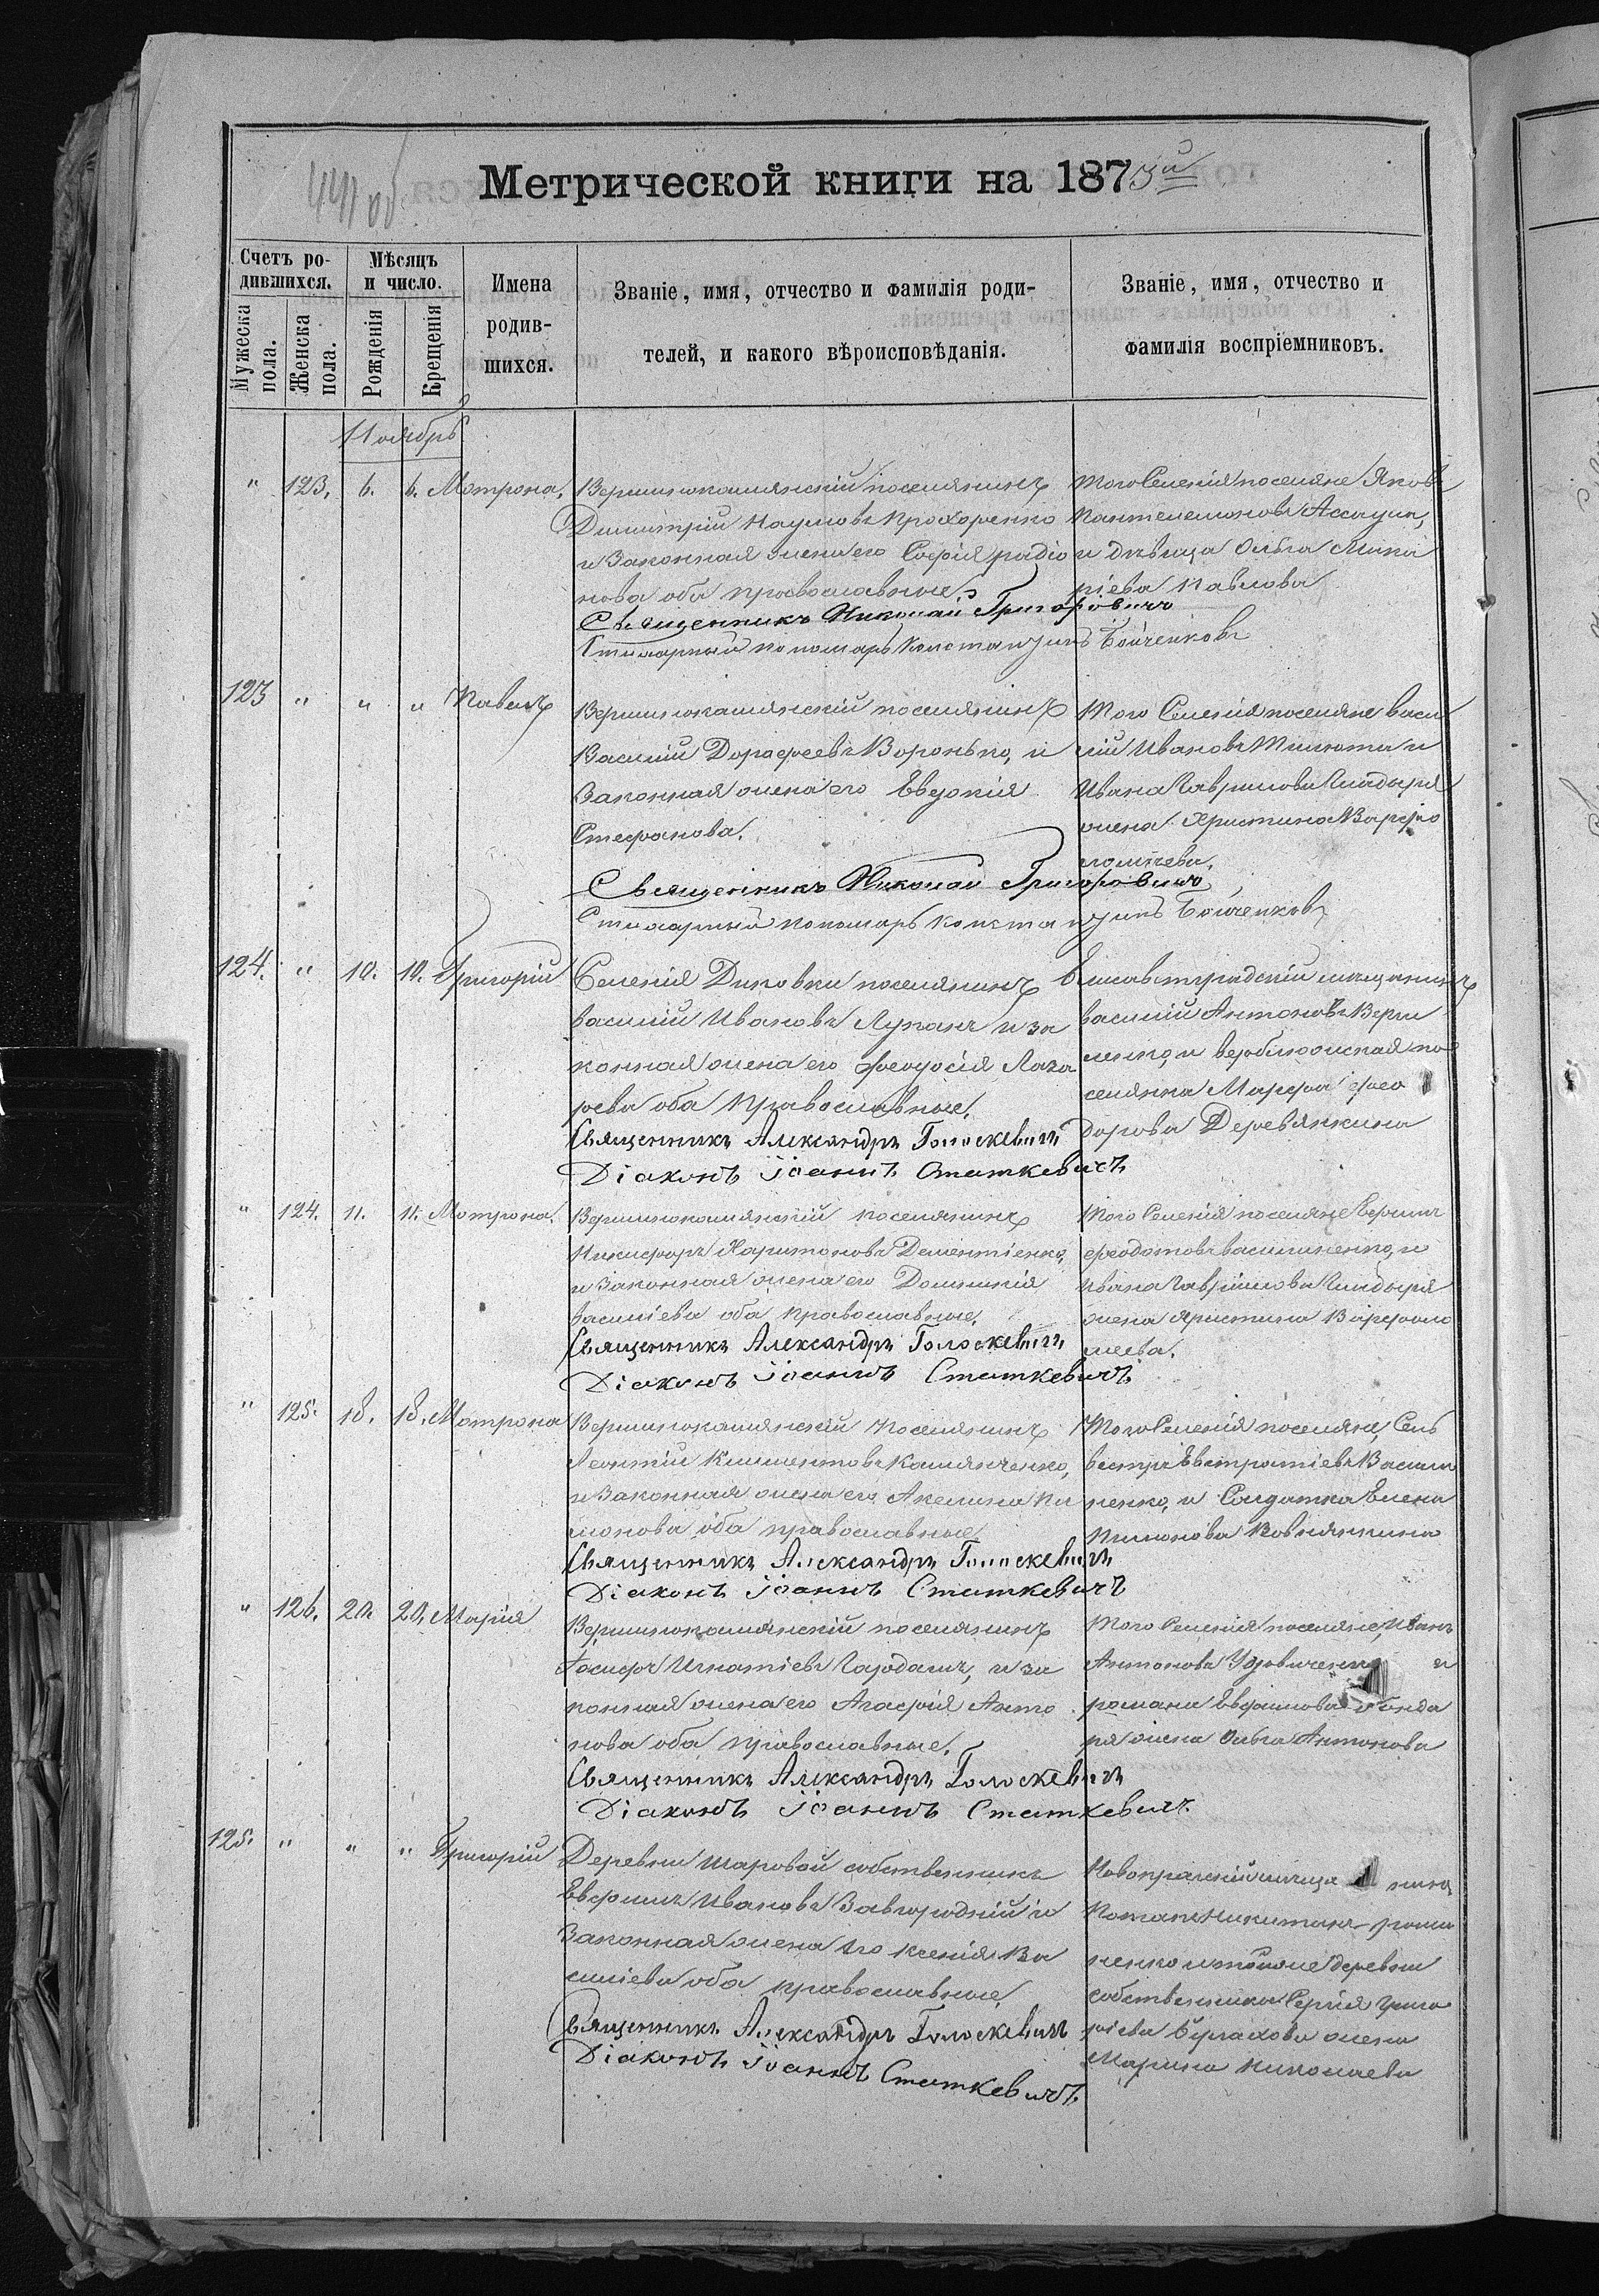 441 об.
Метрической книги на 1873й
Счетъ родившихся.
Мѣсяцъ и число.
Мужеска пола.
Женска пола.
Рожденія
Крещенія
Имена родившихся.
Званіе, имя, отчество и фамилія родителей, и какого вѣроисповѣданія.
Званіе, имя, отчество и фамилія воспріемниковъ.
Ноябрь
" 123. 6. 6. Мотрона.
Вершинокамянскій поселянинъ
Димитрій Наумовъ Прохоренко
и Законная жена его Софія Радіо
нова оба православные
Священникъ Николай Григоровичъ
Стихарный пономарь Константинъ Бойченковъ
Того Селенія поселяне Яковъ
Пантелемоновъ Ассаула,
и дѣвица Ольга Мака
ріева Павлова
123 " " " Павелъ
Вершинокамянскій поселянинъ
Василій Дорофеевъ Воронько, и
Законная жена его Евдокія
Стефанова.
Священникъ Николай Григоровичъ
Стихарный пономарь Константинъ Бойченковъ
Того Селенія поселяне Васи
лій Ивановъ Тилюта и
Ивана Гаврилова Гладыря
жена Христина Варфо
ломѣева.
124. " 10. 10. Григорій
Селенія Диковки поселянинъ
Василій Ивановъ Лупанъ и за
конная жена его Феодосія Лаза
рева оба православные.
Священникъ Александръ Голоскевичъ
Діаконъ Іоаннъ Статкевичъ
Елисаветградскій мѣщанинъ
Василій Антоновъ
и верблюжская по
селянка Марфа Фео
дорова Деревянкина
" 124. 11. 11. Мотрона.
Вершинокамянскій поселянинъ
Никифоръ Харитоновъ Дементіенко,
и Законная жена его Домникія
Василіева оба православные.
Священникъ Александръ Голоскевичъ
Діаконъ Іоаннъ Статкевичъ
Того Селенія поселяне
Феодотовъ Василиненко, и
Ивана Гаврілова Гладыря
жена Христина Варфоло
меева.
" 125. 18. 18. Мотрона
Вершинокамянскій поселянинъ
Леонтій Климентовъ Камянченко,
и Законная жена его Акелина Фи
монова оба православные
Священникъ Александръ Голоскевичъ
Діаконъ Іоаннъ Статкевичъ
Того Селенія поселяне, Силь
вестръ Евстратіевъ Васили
ненко, и Солдатка Елена
Вовнянкина
" 126. 20. 20. Марія
Вершинокамянскій поселянинъ
Іосифъ Игнатіевъ и за
конная жена его Агафія Анто
нова оба православные.
Священникъ Александръ Голоскевичъ
Діаконъ Іоаннъ Статкевичъ
Того Селенія поселяне, Иванъ
Антоновъ и
Романа Евфимова Бонда
ря жена Ольга Антонова
125. " " " Григорій
Деревни Шаровой собственникъ
Евфимъ Ивановъ Завгородній и
Законная жена его Ксенія Ва
силіева оба православные
Священникъ Александръ Голоскевичъ
Діаконъ Іоаннъ Статкевичъ
Новопражскій мѣща нинъ
Рома
ненко и тойже деревни
собственника Сергія Григо
ріева Булахова жена
Марина Николаева